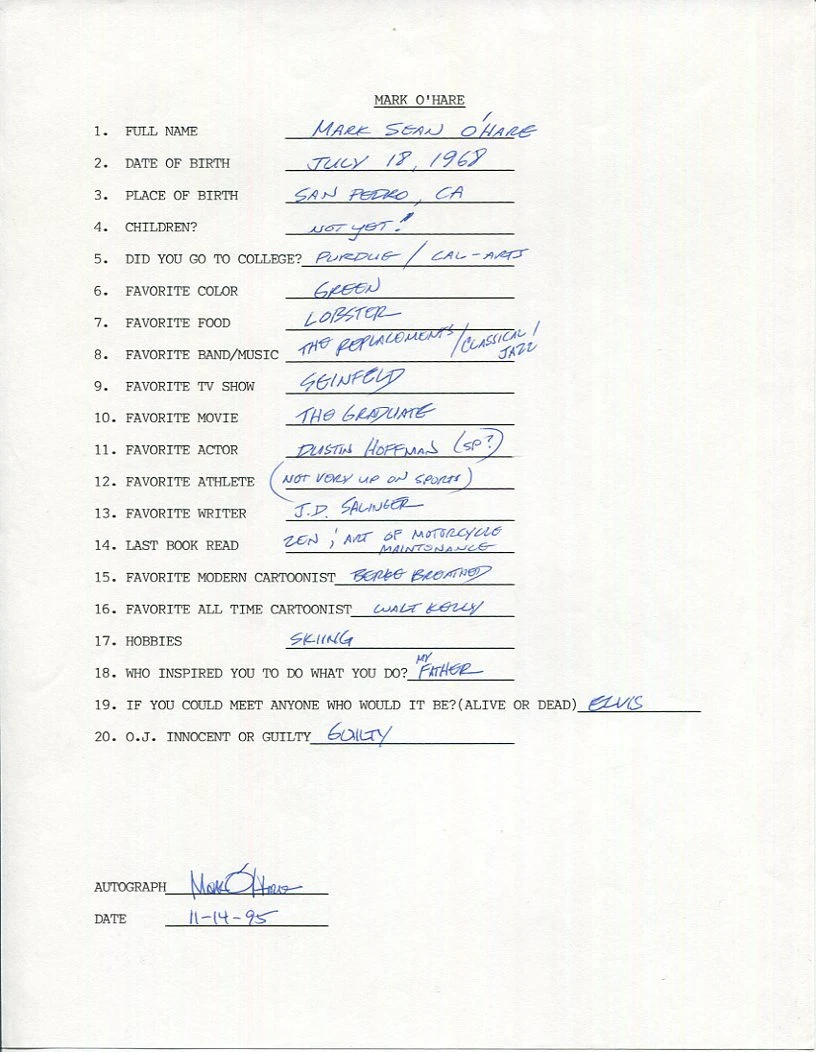 MARK O'HARE
1. FULL NAME MARK SEAN O'HARE
2. DATE OF BIRTH JULY 18, 1968
3. PLACE OF BIRTH SAN PEDRO, CA
4. CHILDREN? NOT YET!
5. DID YOU GO TO COLLEGE? PURDUE / CAL-ARTS
6. FAVORITE COLOR GREEN
7. FAVORITE FOOD LOBSTER
8. FAVORITE BAND/MUSIC THE REPLACEMENTS / CLASSICAL / JAZZ
9. FAVORITE TV SHOW SEINFELD
10. FAVORITE MOVIE THE GRADUATE
11. FAVORITE ACTOR DUSTIN HOFFMAN (SP?)
12. FAVORITE ATHLETE (NOT VERY UP ON SPORTS)
13. FAVORITE WRITER J.D. SALINGER
14. LAST BOOK READ ZEN ; ART OF MOTORCYCLE
MAINTENANCE
15. FAVORITE MODERN CARTOONIST BERKE BREATHED
16. FAVORITE ALL TIME CARTOONIST WALT KELLY
17. HOBBIES SKIING
18. WHO INSPIRED YOU TO DO WHAT YOU DO? MY FATHER
19. IF YOU COULD MEET ANYONE WHO WOULD IT BE?(ALIVE OR DEAD) ELVIS
20. O.J. INNOCENT OR GUILTY GUILTY
AUTOGRAPH Mark O'Hare
DATE 11-14-95